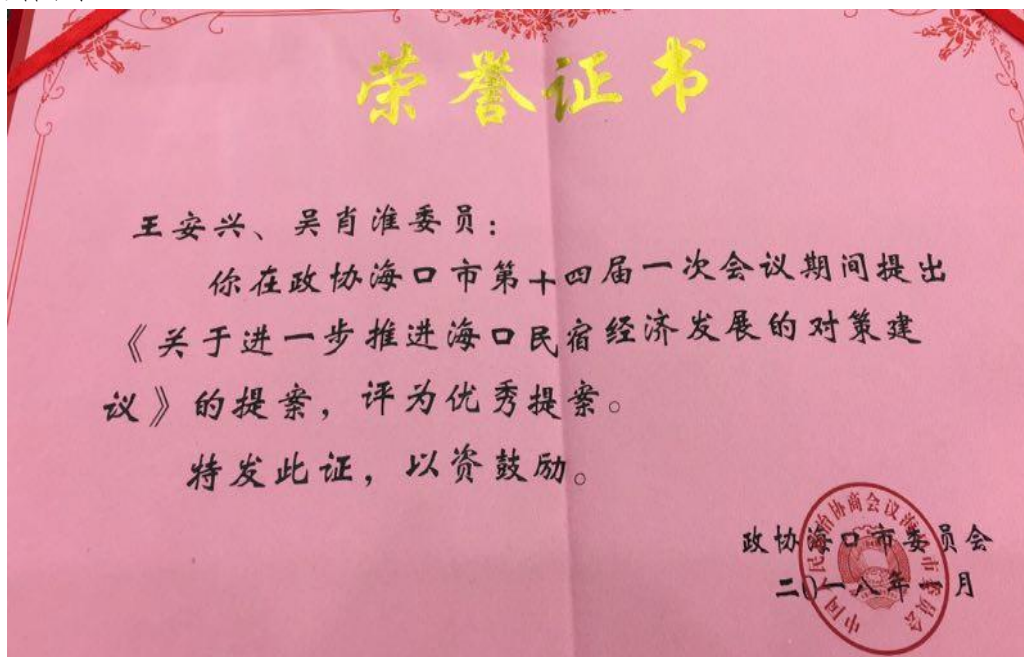 荣誉证书
王安兴、吴肖淮委员：
你在政协海口市第十四届一次会议期间提出
《关于进一步推进海口民宿经济发展的对策建
议》的提案，评为优秀提案。
特发此证，以资鼓励。
政协海口市委员会
二〇一八年一月